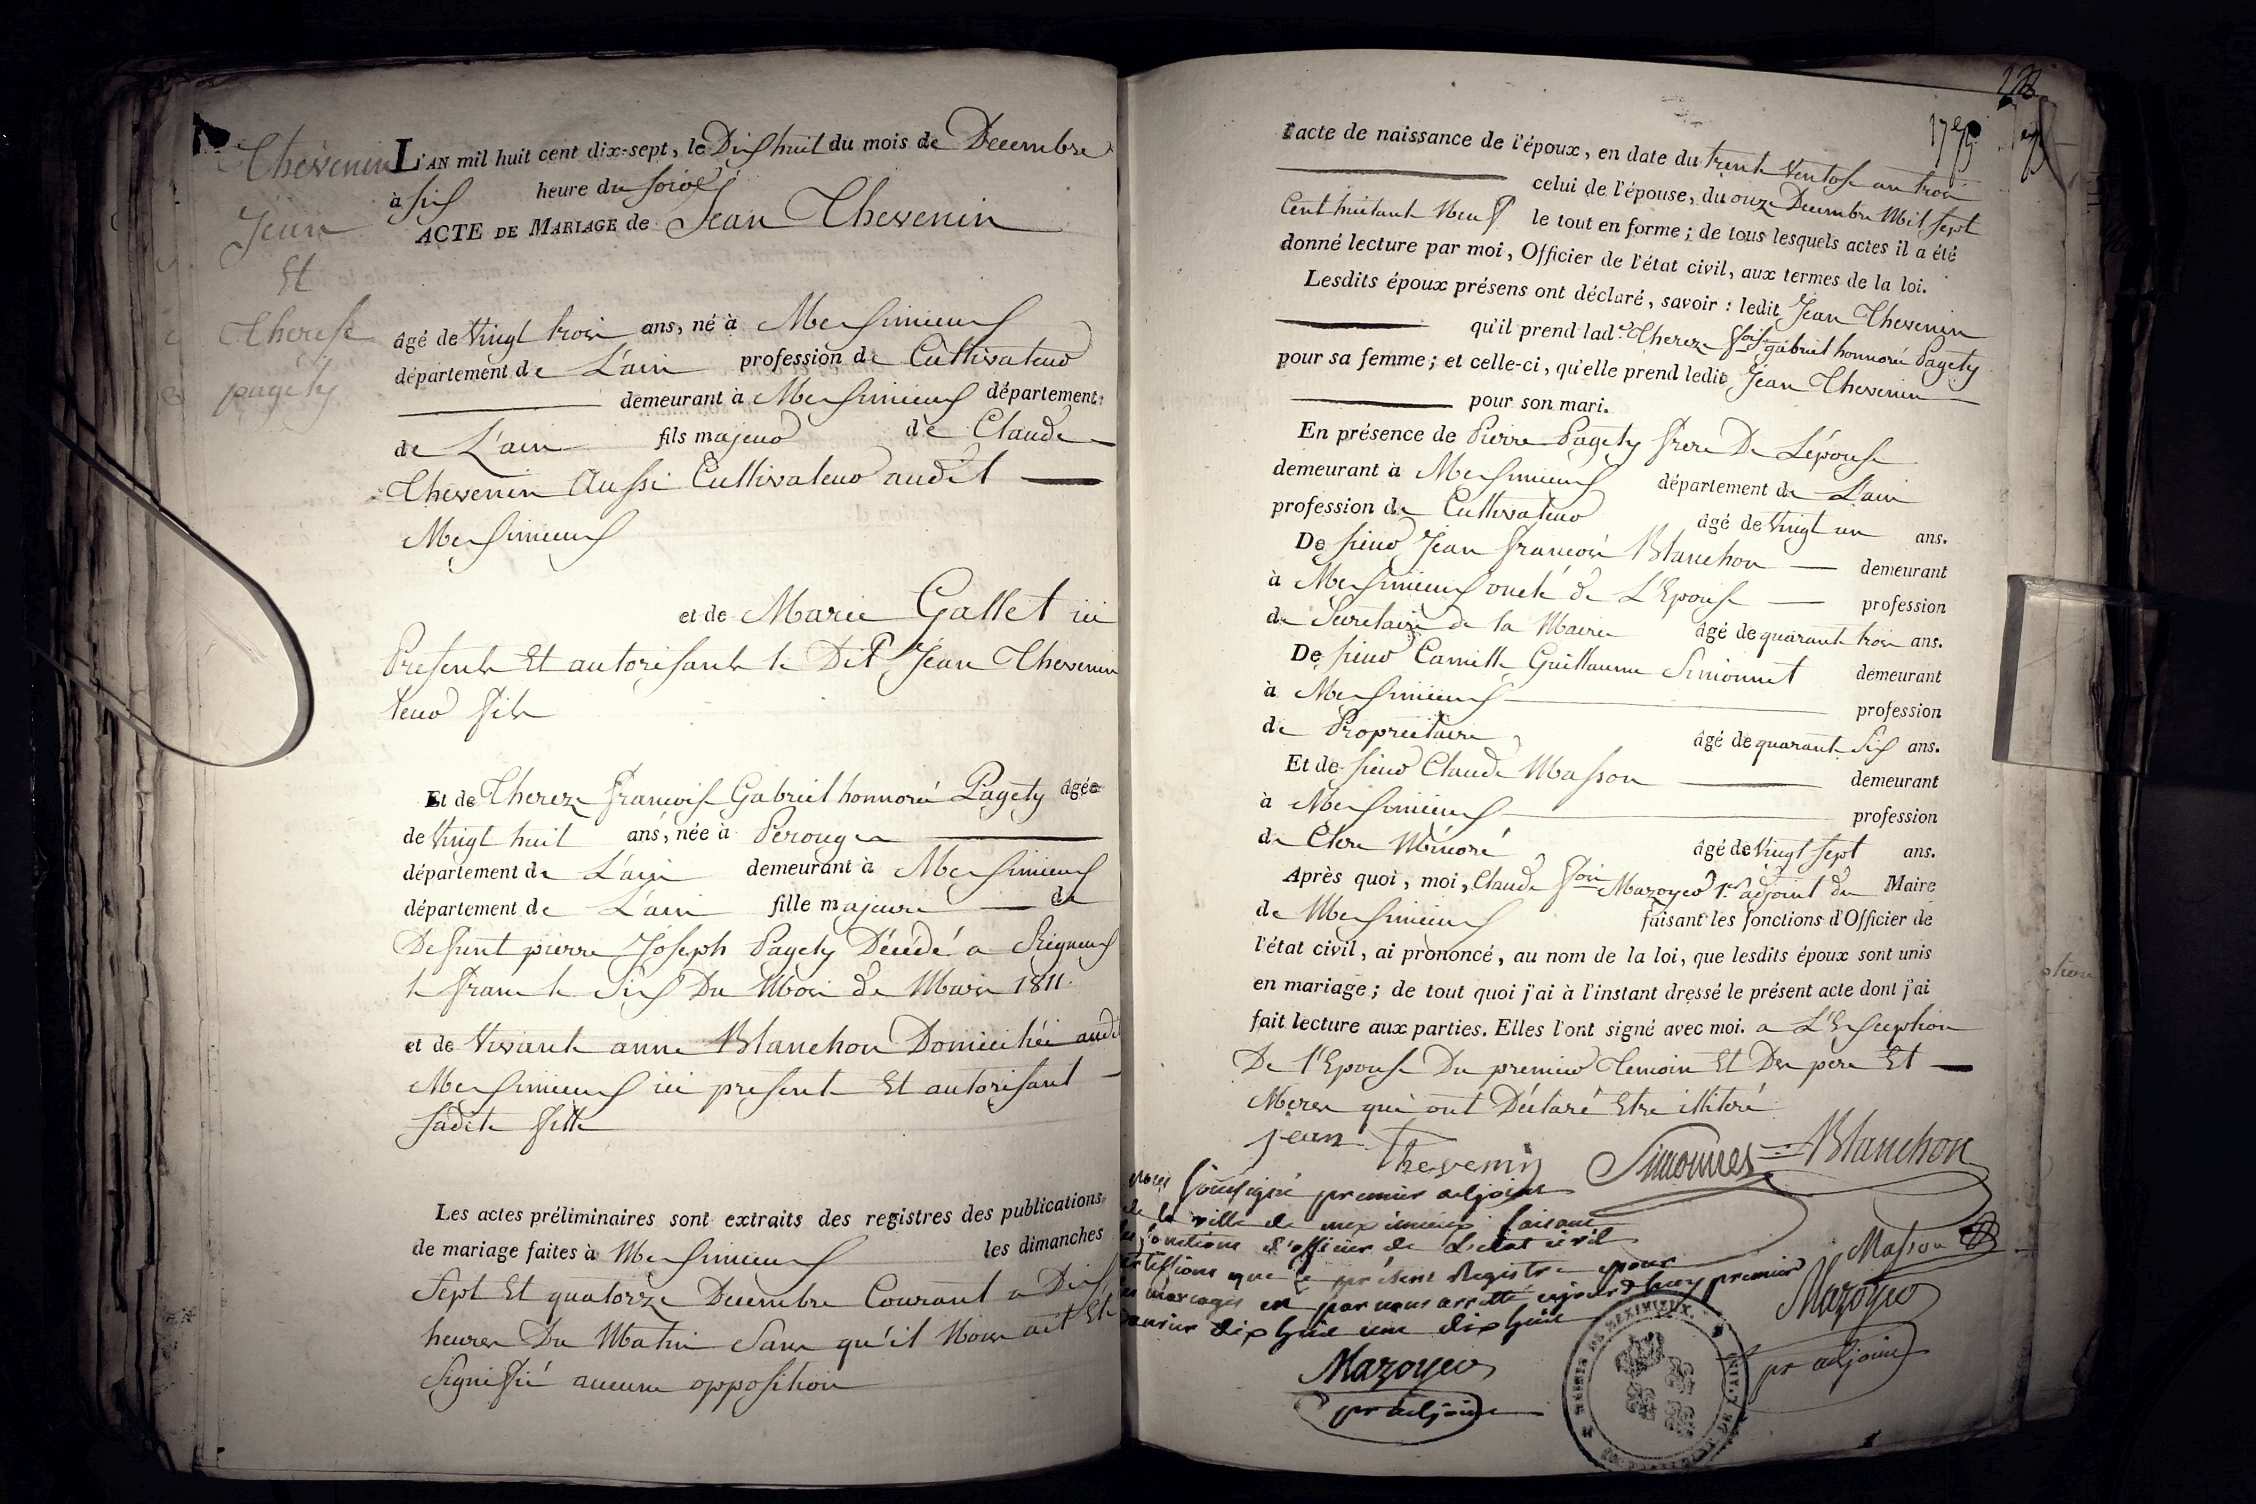 Thevenin
Jean
Et
Therese
pagety
L'AN mil huit cent dix-sept, le Dix huit du mois de Decembre
à six heure du soir
ACTE DE MARIAGE de Jean Thevenin
âgé de Vingt trois ans, né à Meximieux
département de L'ain profession de Cultivateur
demeurant à Meximieux département
de L'ain fils majeur de Claude
Thevenin Aussi Cultivateur audit
Meximieux
et de Marie Gallet ici
Presents Et autorisants le Dit Jean Thevenin
leur fils
Et de Thereze françoise Gabriel honnoré Pagety âgée
de Vingt huit ans, née à Perouges
département de L'ain demeurant à Meximieux
département de L'ain fille majeure de
Defunt pierre Joseph Pagety Décédé a Rigneux
le franc le Six Du Mois de Mars 1811.
et de Vivante anne Blanchon Domiciliée audit
Meximieux ici presente Et autorisant
sadite fille
Les actes préliminaires sont extraits des registres des publications
de mariage faites à Meximieux les dimanches
Sept Et quatorze Decembre Courant a Dix
heures Du Matin Sans qu'il Nous ait Eté
Signiffié aucune opposition
l'acte de naissance de l'époux, en date du trente Ventose an trois
celui de l'épouse, du onze Decembre Mil sept
Cent huitante Neuf le tout en forme; de tous lesquels actes il a été
donné lecture par moi, Officier de l'état civil, aux termes de la loi.
Lesdits époux présens ont déclaré, savoir: ledit Jean Thevenin
qu'il prend lad.e Thereze fçoise gabriel honnoré Pagety
pour sa femme; et celle-ci, qu'elle prend ledit Jean Thevenin
pour son mari.
En présence de Pierre Pagety frere De L'épouse
demeurant à Meximieux département de L'ain
profession de Cultivateur âgé de Vingt un ans.
De sieur Jean françois Blanchon demeurant
à Meximieux oncle de L'Epouse profession
de Secretaire de la Mairie âgé de quarante trois ans.
De sieur Camille Guillaume Simonnet demeurant
à Meximieux profession
de Propriétaire âgé de quarante Six ans.
Et de sieur Claude Masson demeurant
à Meximieux profession
de Clerc Minoré âgé de Vingt sept ans.
Après quoi, moi, Claude fçois Mazoyer 1er adjoint du Maire
de Meximieux faisant les fonctions d'Officier de
l'état civil, ai prononcé, au nom de la loi, que lesdits époux sont unis
en mariage; de tout quoi j'ai à l'instant dressé le présent acte dont j'ai
fait lecture aux parties. Elles l'ont signé avec moi. a L'Exception
De l'Epouse Du premier Temoin Et Des pere Et
Meres qui ont Déclaré Etre illiteré
jean Thevenin Simonnet Blanchon
nous soussigné premier adjoint
de la ville de meximieux faisant
les fonctions d'officier de L'etat civil
certifions que le présent Registre pour
les mariages est par nous arretté aujourd'huy premier
janvier dix huit cent dix huit
Masson
Mazoyer
pr adjoint
Mazoyer
pr adjoint